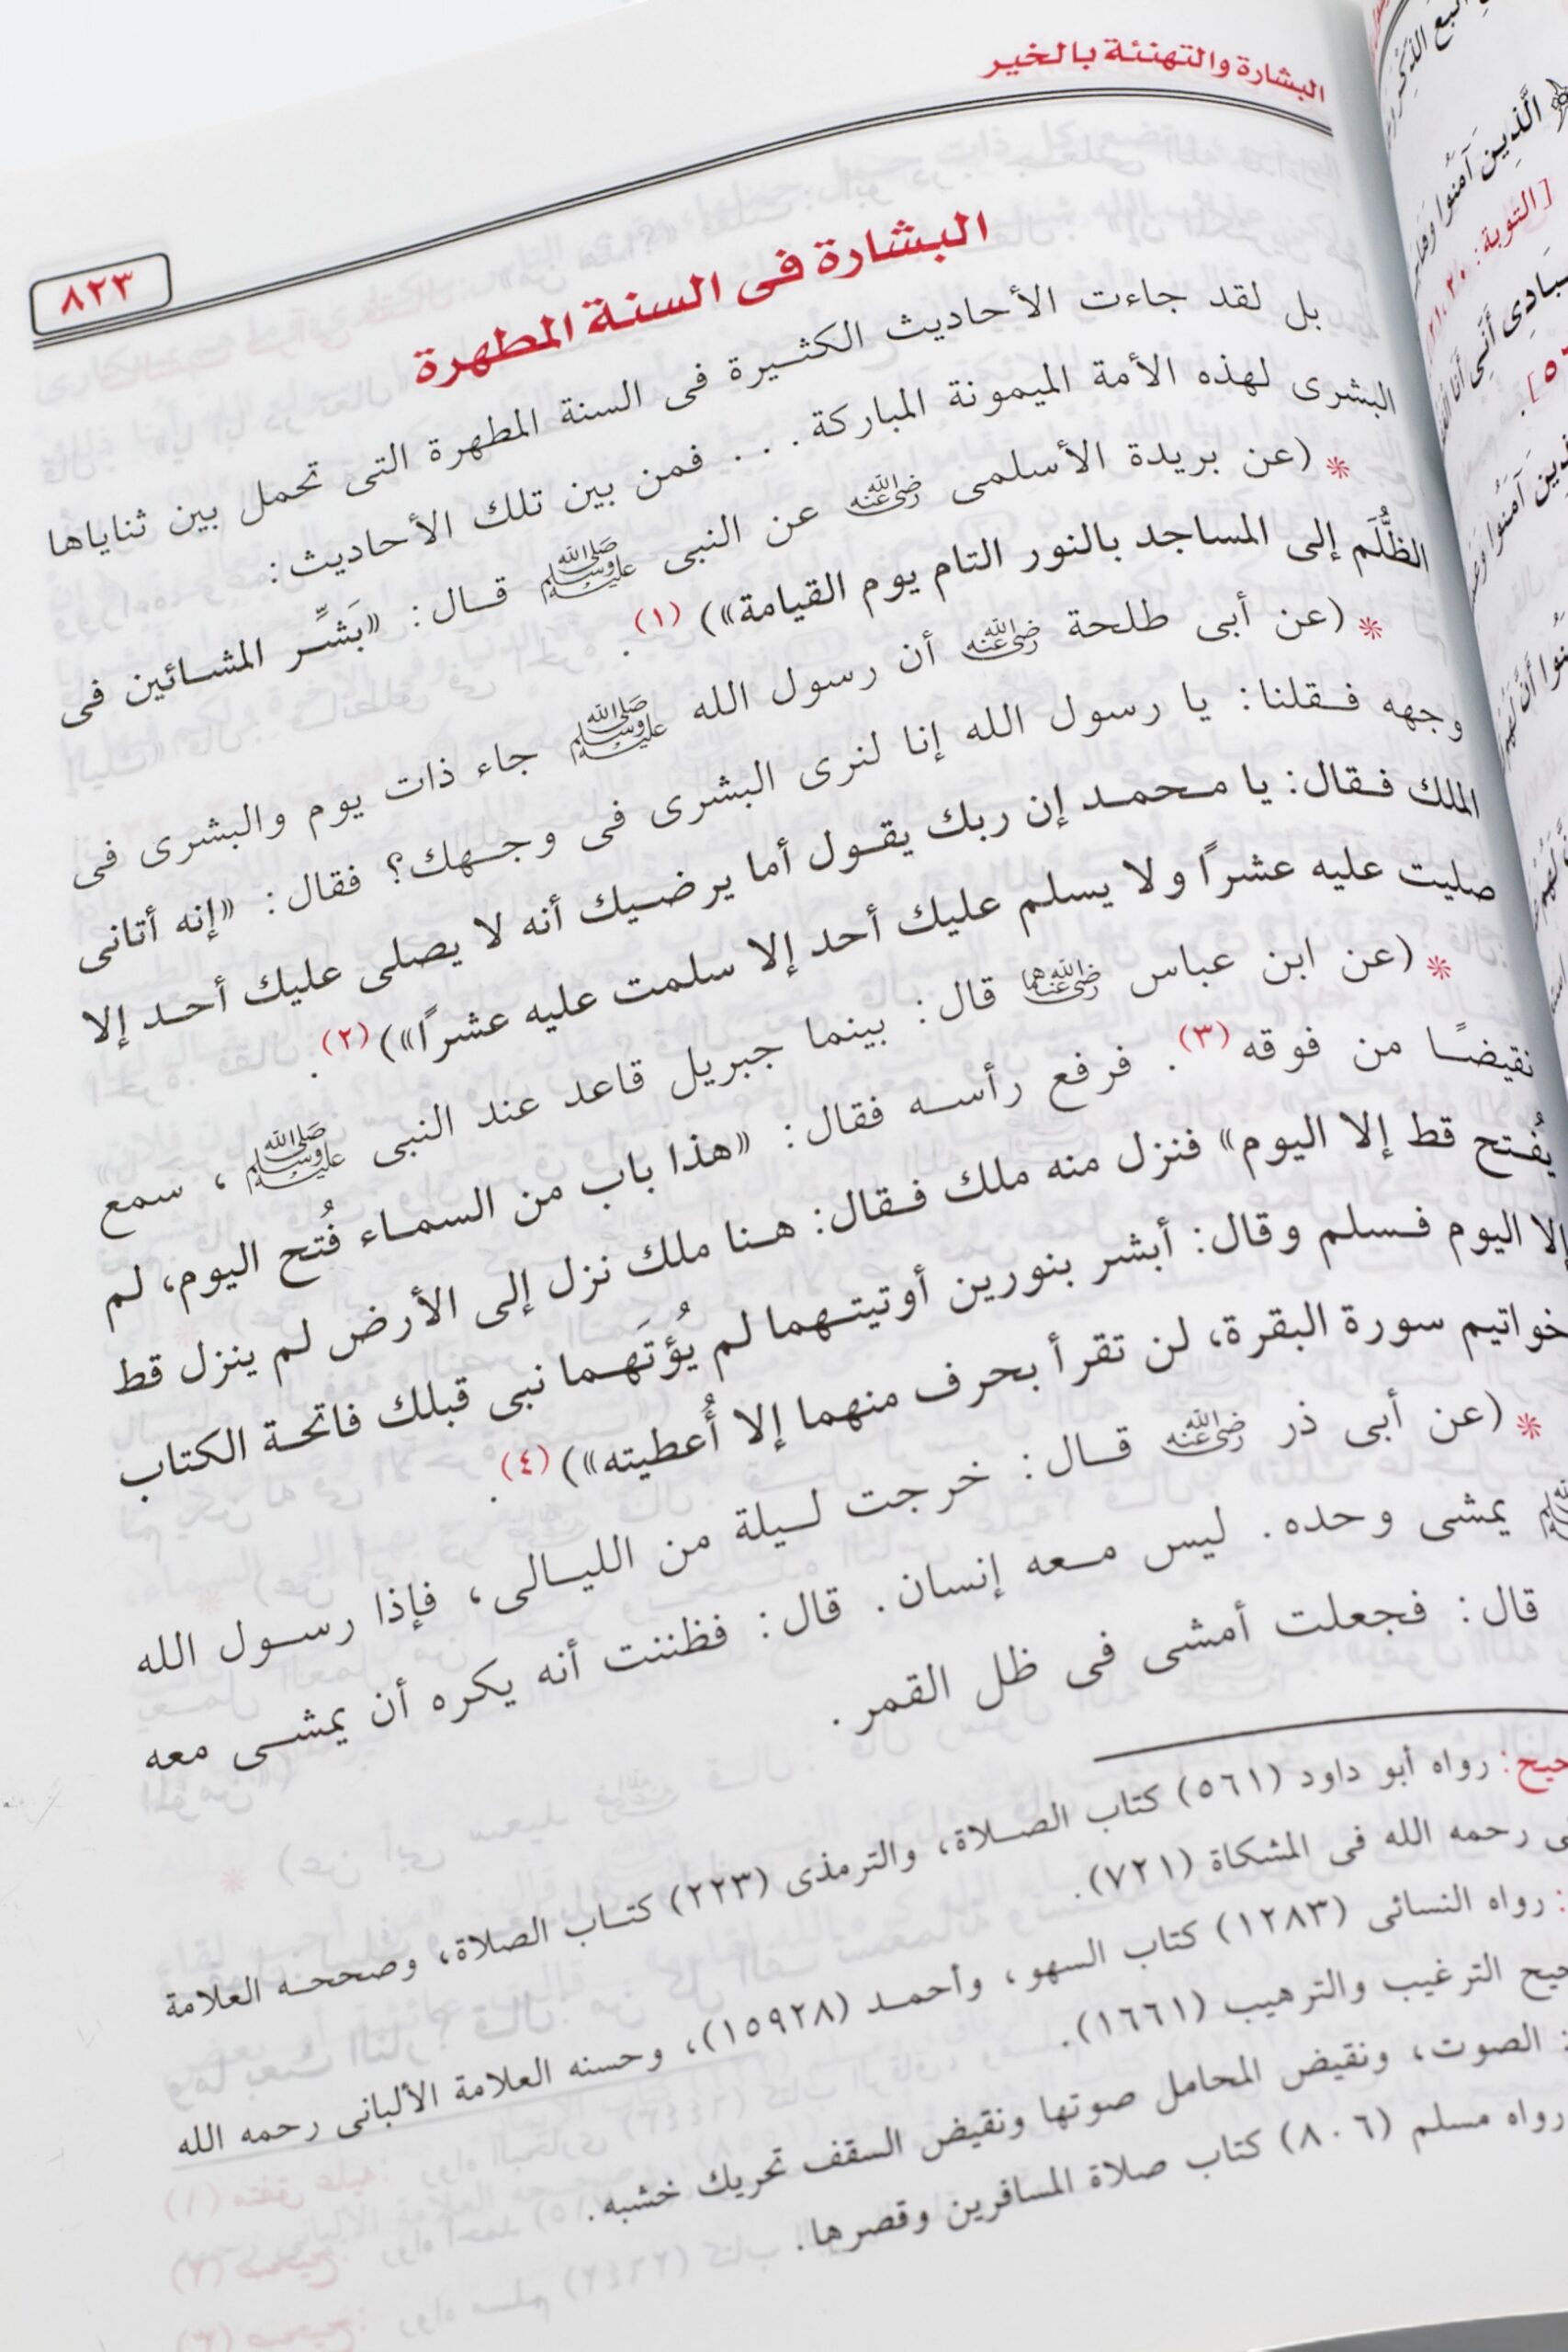 البشارة والتهنئة بالخير
٨٢٣
البشارة فى السنة المطهرة
بل لقد جاءت الأحاديث الكثيرة فى السنة المطهرة التى تحمل بين ثناياها
البشرى لهذه الأمة الميمونة المباركة . . . فمن بين تلك الأحاديث:
* (عن بريدة الأسلمى رضي الله عنه عن النبى صلى الله عليه وسلم قال: «بَشِّر المشائين فى
الظُّلَم إلى المساجد بالنور التام يوم القيامة») (١).
* (عن أبى طلحة رضي الله عنه أن رسول الله صلى الله عليه وسلم جاء ذات يوم والبشرى فى
وجهه فقلنا: يا رسول الله إنا لنرى البشرى فى وجهك؟ فقال: «إنه أتانى
الملك فقال: يا محمد إن ربك يقول أما يرضيك أنه لا يصلى عليك أحد إلا
صليت عليه عشرًا ولا يسلم عليك أحد إلا سلمت عليه عشرًا») (٢).
* (عن ابن عباس رضي الله عنهما قال: بينما جبريل قاعد عند النبى صلى الله عليه وسلم، سمع
نقيضًا من فوقه (٣). فرفع رأسه فقال: «هذا باب من السماء فُتح اليوم، لم
يُفتح قط إلا اليوم» فنزل منه ملك فقال: هنا ملك نزل إلى الأرض لم ينزل قط
إلا اليوم فسلم وقال: أبشر بنورين أوتيتهما لم يُؤتَهما نبى قبلك فاتحة الكتاب
خواتيم سورة البقرة، لن تقرأ بحرف منهما إلا أُعطيته») (٤).
* (عن أبى ذر رضي الله عنه قال: خرجت ليلة من الليالى، فإذا رسول الله
يمشى وحده. ليس معه إنسان. قال: فظننت أنه يكره أن يمشى معه
قال: فجعلت أمشى فى ظل القمر.
رواه أبو داود (٥٦١) كتاب الصلاة، والترمذى (٢٢٣) كتاب الصلاة، وصححه العلامة
رحمه الله فى المشكاة (٧٢١).
: رواه النسائى (١٢٨٣) كتاب السهو، وأحمد (١٥٩٢٨)، وحسنه العلامة الألبانى رحمه الله
الترغيب والترهيب (١٦٦١).
: الصوت، ونقيض المحامل صوتها ونقيض السقف تحريك خشبه.
رواه مسلم (٨٠٦) كتاب صلاة المسافرين وقصرها.
الَّذِينَ آمَنُوا
[التوبة: ٢٠، ٢١]